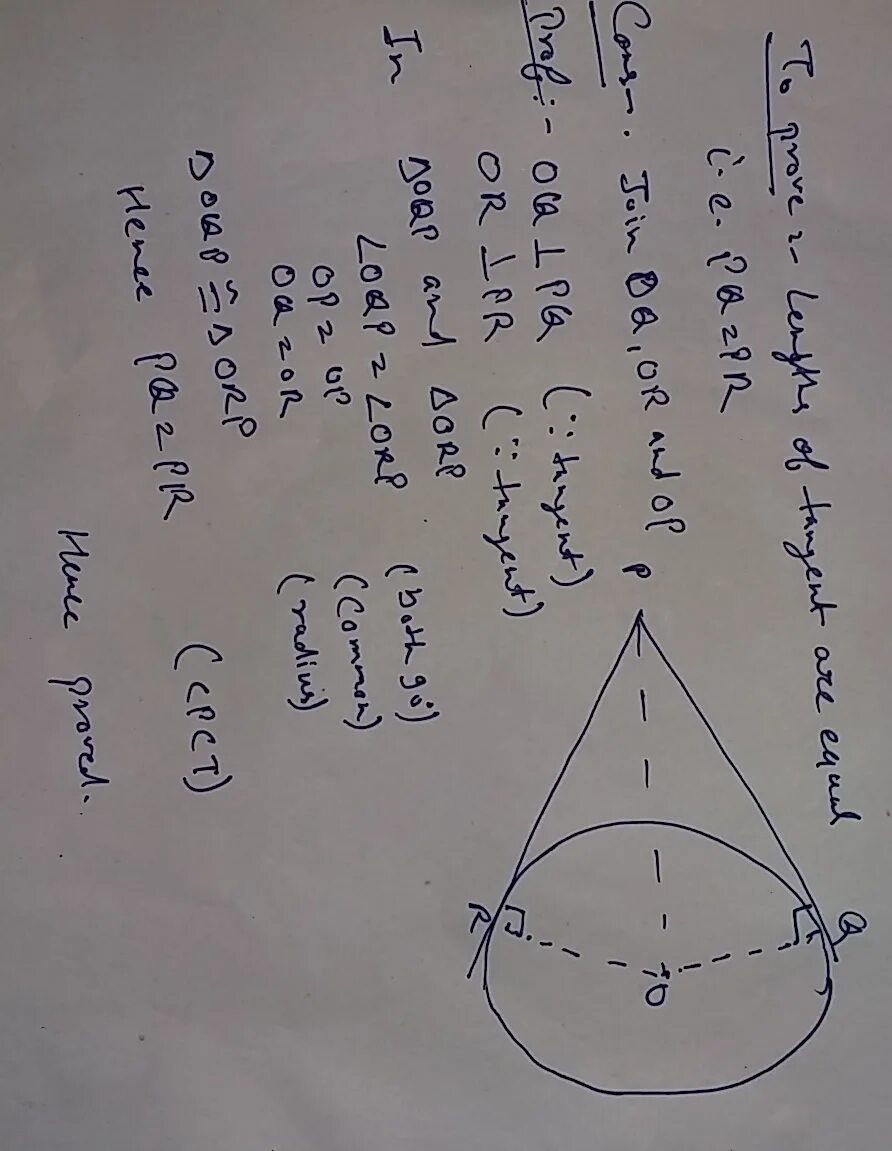 To prove :- Lengths of tangent are equal
i.e. PQ = PR
Cons - . Join OQ, OR and OP
Prof :- OQ ⊥ PQ (∵ tangent)
OR ⊥ PR (∵ tangent)
In ΔOQP and ΔORP
∠OQP = ∠ORP (both 90°)
OP = OP (common)
OQ = OR (radius)
ΔOQP ≅ ΔORP
Hence PQ = PR (CPCT)
Hence proved.
P
Q
R
O